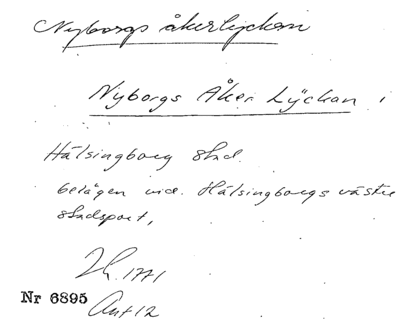 Nyborgs åkerlyckan
Nyborgs Åker Lÿckan i
Hälsingborg Stad.
belägen vid. Hälsingborgs västre
stadsport,
1771
Nr 6895
12